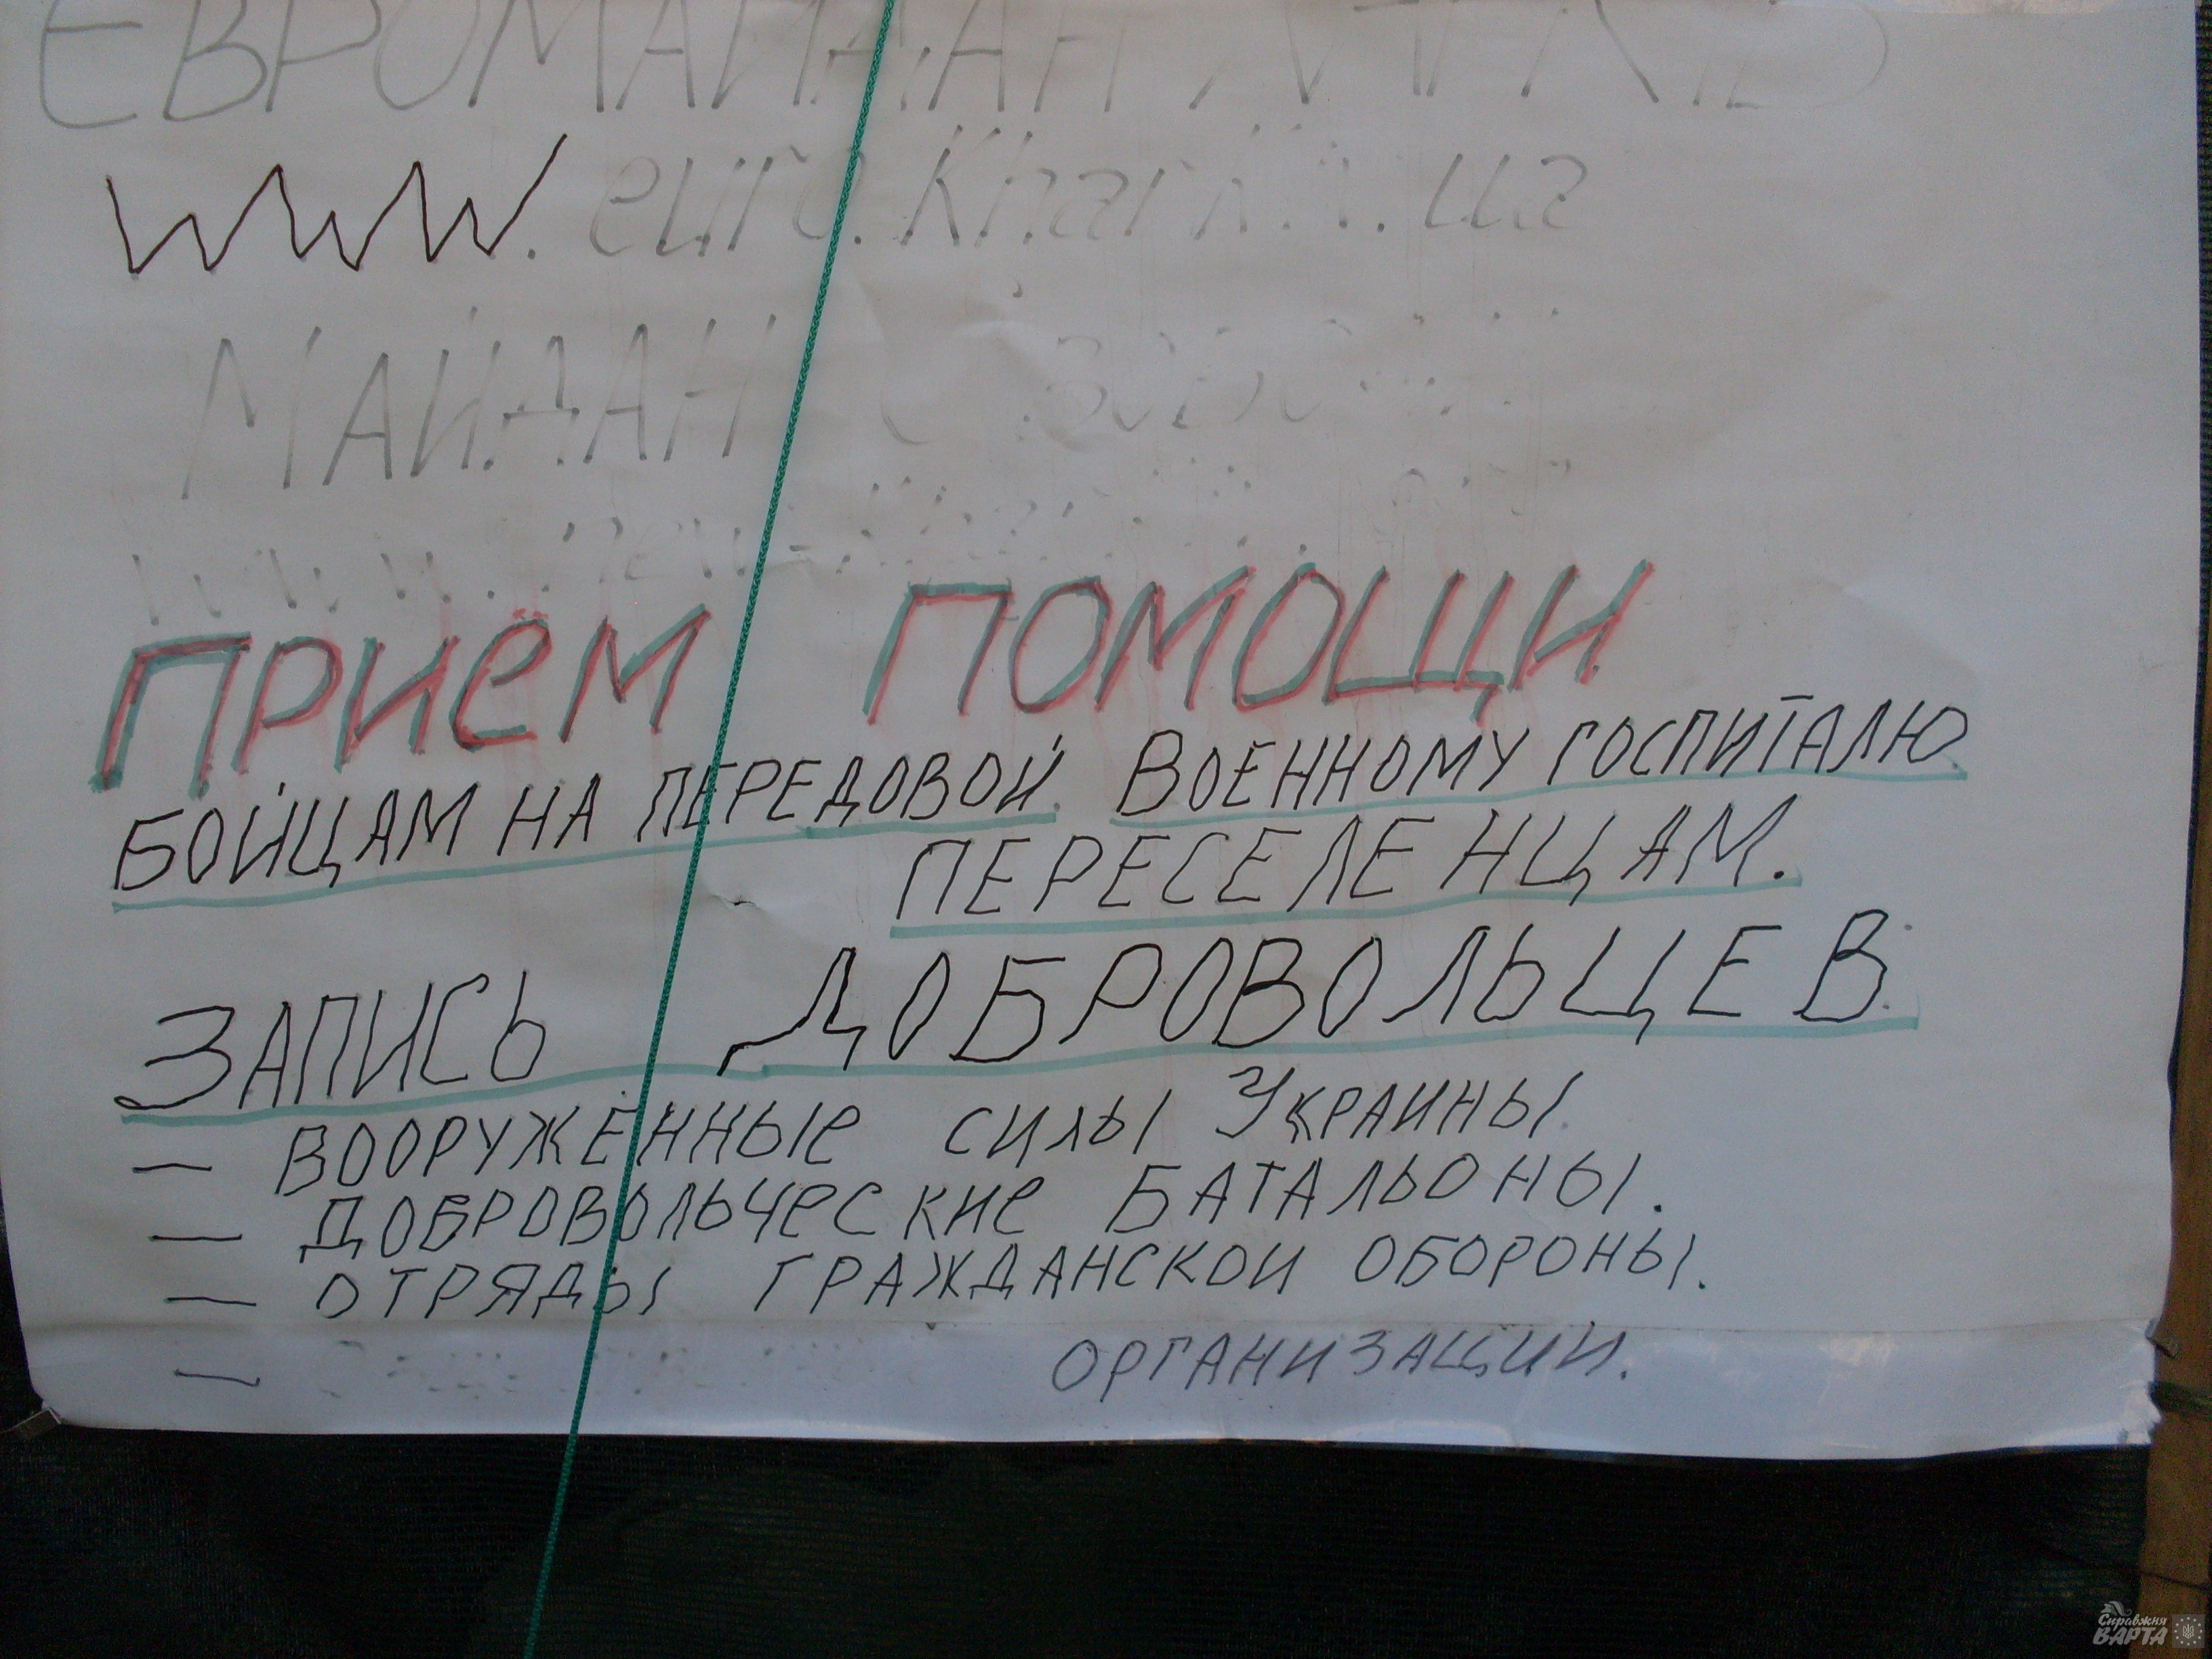 ЄВРОМАЙДАН
www.euro.kharkiv.ua
МАЙДАН
www.
ПРИЁМ ПОМОЩИ
БОЙЦАМ НА ПЕРЕДОВОЙ. ВОЕННОМУ ГОСПИТАЛЮ
ПЕРЕСЕЛЕНЦАМ.
ЗАПИСЬ ДОБРОВОЛЬЦЕВ.
— ВООРУЖЁННЫЕ СИЛЫ УКРАИНЫ.
— ДОБРОВОЛЬЧЕСКИЕ БАТАЛЬОНЫ.
— ОТРЯДЫ ГРАЖДАНСКОИ ОБОРОНЫ.
— ОРГАНИЗАЦИИ.
Справжня
ВАРТА